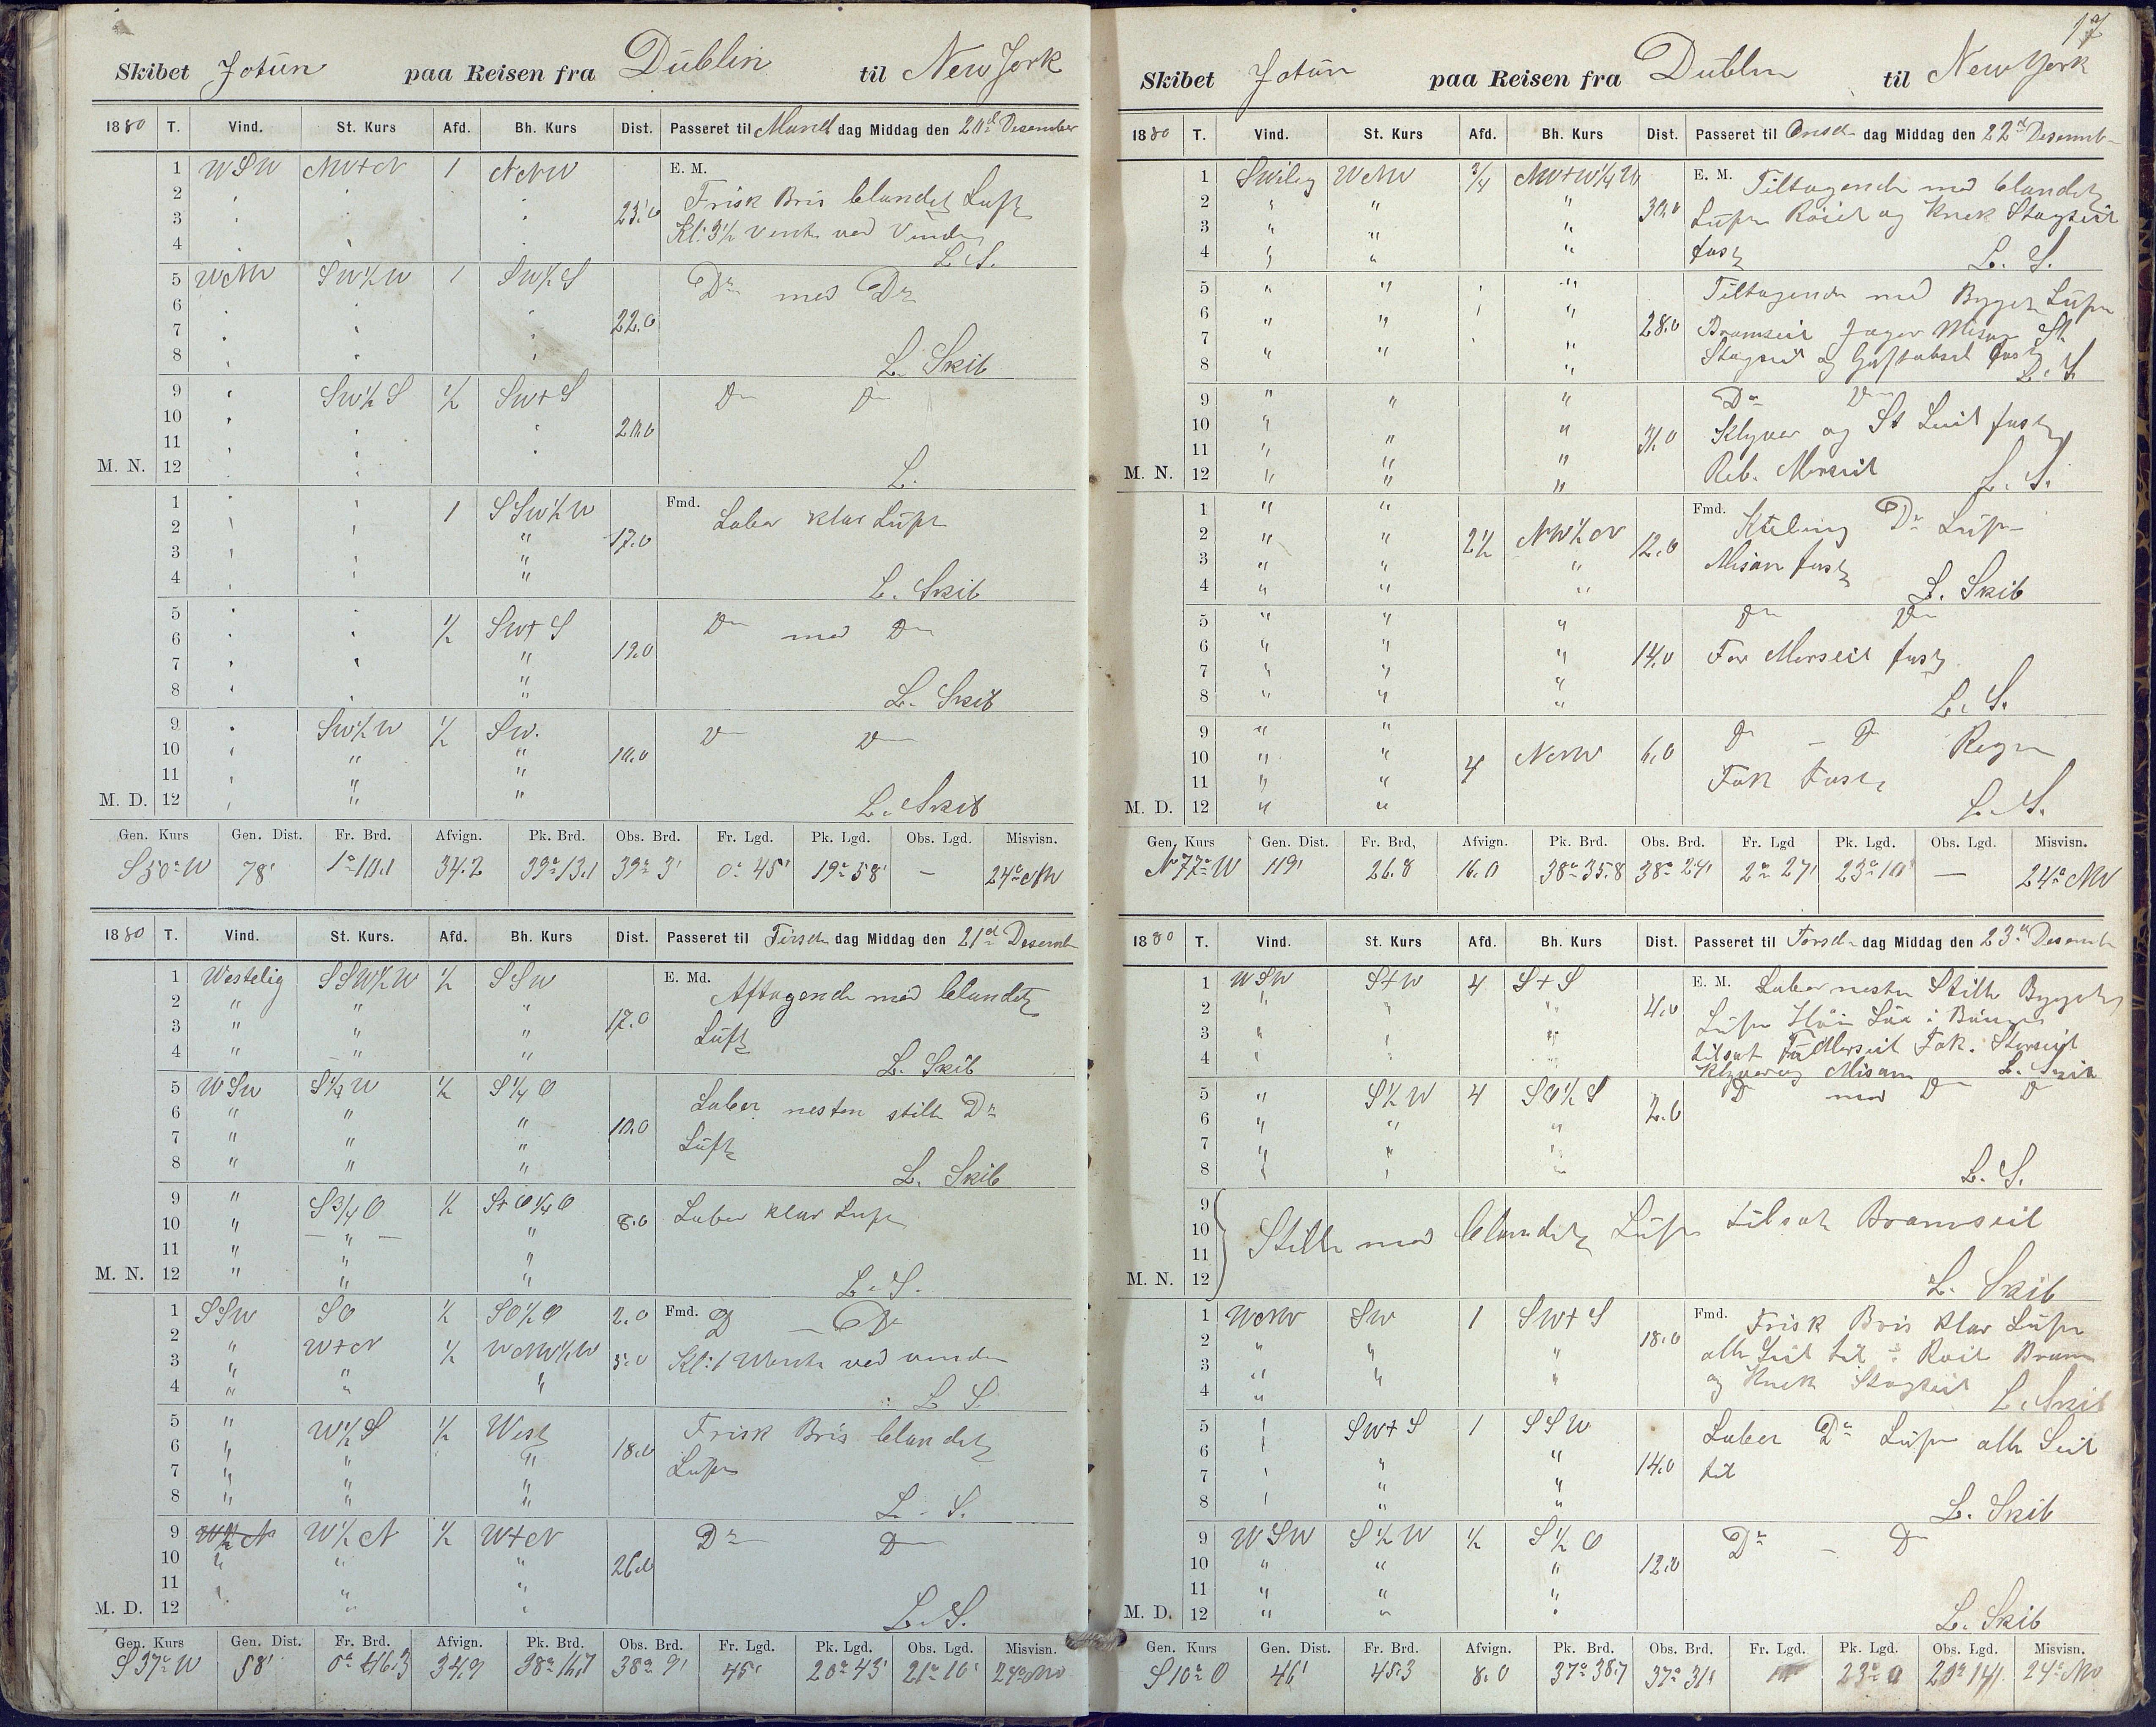 Skibet Jotun paa Reisen fra Dublin til New York
1880 T. Vind. St. Kurs Afd. Bh. Kurs Dist. Passeret til Mand dag Middag den 20d Desember
1 WSW NW+N 1 NNW E. M.
2 Frisk Bris blandet Luft
3 23,0 Kl: 3½ vente ved Vinden
4 L. S.
5 WNW SW½W 1 SW½S Do med Do
6
7 22.0
8 L. Skib
9 SW½S ½ SW+S Do Do
10
11 20.0
M. N. 12 L.
1 1 SSW½W Fmd. Laber klar Luft
2 " 17.0
3 "
4 " L. Skib
5 ½ SW+S Do med Do
6 "
7 " 12.0
8 " L. Skib
9 SW½W ½ SW. Do Do
10 " " 10.0
11 " "
M. D. 12 " " L. Skib
Gen. Kurs Gen. Dist. Fr. Brd. Afvign. Pk. Brd. Obs. Brd. Fr. Lgd. Pk. Lgd. Obs. Lgd. Misvisn.
S50°W 78' 1°10.1 34.2 39°13.1 39° 3' 0° 45' 19° 58' — 24° NW
1880 T. Vind. St. Kurs. Afd. Bh. Kurs Dist. Passeret til Tirsd dag Middag den 21d Desemb
1 Westelig SSW½W ½ SSW E. Md.
2 " " " Aftagende med blandet
3 " " " 17.0 Luft
4 " " " L. Skib
5 WSW S¼W ½ S¼O Laber nesten stille Do
6 " " " 10.0
7 " " " Luft
8 " " " L. Skib
9 " S¾O ½ S+O¼O 8.0 Laber klar Luft
10 " " "
11 " " "
M. N. 12 " " " L. S.
1 SSW SO ½ SO½O 2.0 Fmd. D — Do
2 " W+N ½ WNW½W 5.0 Kl: 1 Vente ved vinden
3 " "
4 " " " L S
5 " W½S ½ West Frisk Bris blandet
6 " " " 18.0 Luft
7 " " "
8 " " " L. S.
9 W½N W½N ½ W+N Do D
10 " " " 26.0
11 " " "
M. D. 12 " L. S.
Gen. Kurs Gen. Dist. Fr. Brd. Afvign. Pk. Brd. Obs. Brd. Fr. Lgd. Pk. Lgd. Obs. Lgd. Misvisn.
S37°W 58' 0° 46.3 34.9 38° 16,7 38° 9' 45' 20° 43' 21° 10' 24° NW
17
Skibet Jotun paa Reisen fra Dublin til New York
1880 T. Vind. St. Kurs Afd. Bh. Kurs Dist. Passeret til Onsd dag Middag den 22d Desemb
1 SWelig WNW ¾ NW+W¼W E. M. Tiltagende med blandet
2 " " " 30,0 Luft Roiel og Knek Stagseil
3 " " "
4 " " " fast L. S.
5 " " " Tiltagende med Byget Luft
6 " " " 28.0 Bramseil Jager Misan St
7 " " Stagseil og Gaftobseil fast
8 " " L. S
9 " " " Do Do
10 " " 31.0 Klyver og St Seil fast
11 " " "
M. N. 12 " " " Reb. Merseil L. S.
1 " " Fmd. Kuling Do Luft
2 " " 2½ NW½N 12.0
3 " " " Misan fast
4 " " " L. Skib
5 " " " Do Do
6 " " " 14.0 For Merseil fast
7 " " "
8 " " " L. S.
9 " " D — D Regn
10 " " 4 NNW 6.0
11 " " Fok Fast
M. D. 12 " " L. S.
Gen. Kurs Gen. Dist. Fr. Brd, Afvign. Pk. Brd. Obs. Brd. Fr. Lgd Pk. Lgd. Obs. Lgd. Misvisn.
N77°W 119' 26.8 16.0 38° 35.8 38° 24' 2° 27' 23° 10' — 24° NW
1880 T. Vind. St. Kurs Afd. Bh. Kurs Dist. Passeret til Torsd dag Middag den 23d Desemb
1 WSW S+W 4 S+S E. M. Laber nesten Stille Byget
2 " " " 4.0 Luft Høi Sø
3 " " " tilsat Merseil Fok. Storseil
4 " " " Klyver og Misan L. Skib
5 " S½W 4 SO½S D med D D
6 " " " 2.0
7 " " "
8 " " " L. S.
9
10 Stille med blandet Luft tilsat Bramseil
11
M. N. 12 L. Skib
1 WNW SW 1 SW+S Fmd. Frisk Bris klar Luft
2 " " " 18.0 alle Seil til Roiel Bram
3 " " " og Knek Stagseil
4 " L. Skib
5 SW+S 1 SSW Laber Do Luft alle Seil
6 " 14.0 til
7 " "
8 " " L. Skib
9 WSW S½W ½ S½O Do — D
10 " " " 12.0
11 " " "
M. D. 12 " " " L. Skib
Gen. Kurs Gen. Dist. Fr. Brd. Afvign. Pk. Brd. Obs. Brd. Fr. Lgd. Pk. Lgd. Obs. Lgd. Misvisn.
S10°O 46' 45.3 8.0 37° 38.7 37° 31' 10' 23° 0 20° 14' 24° NW